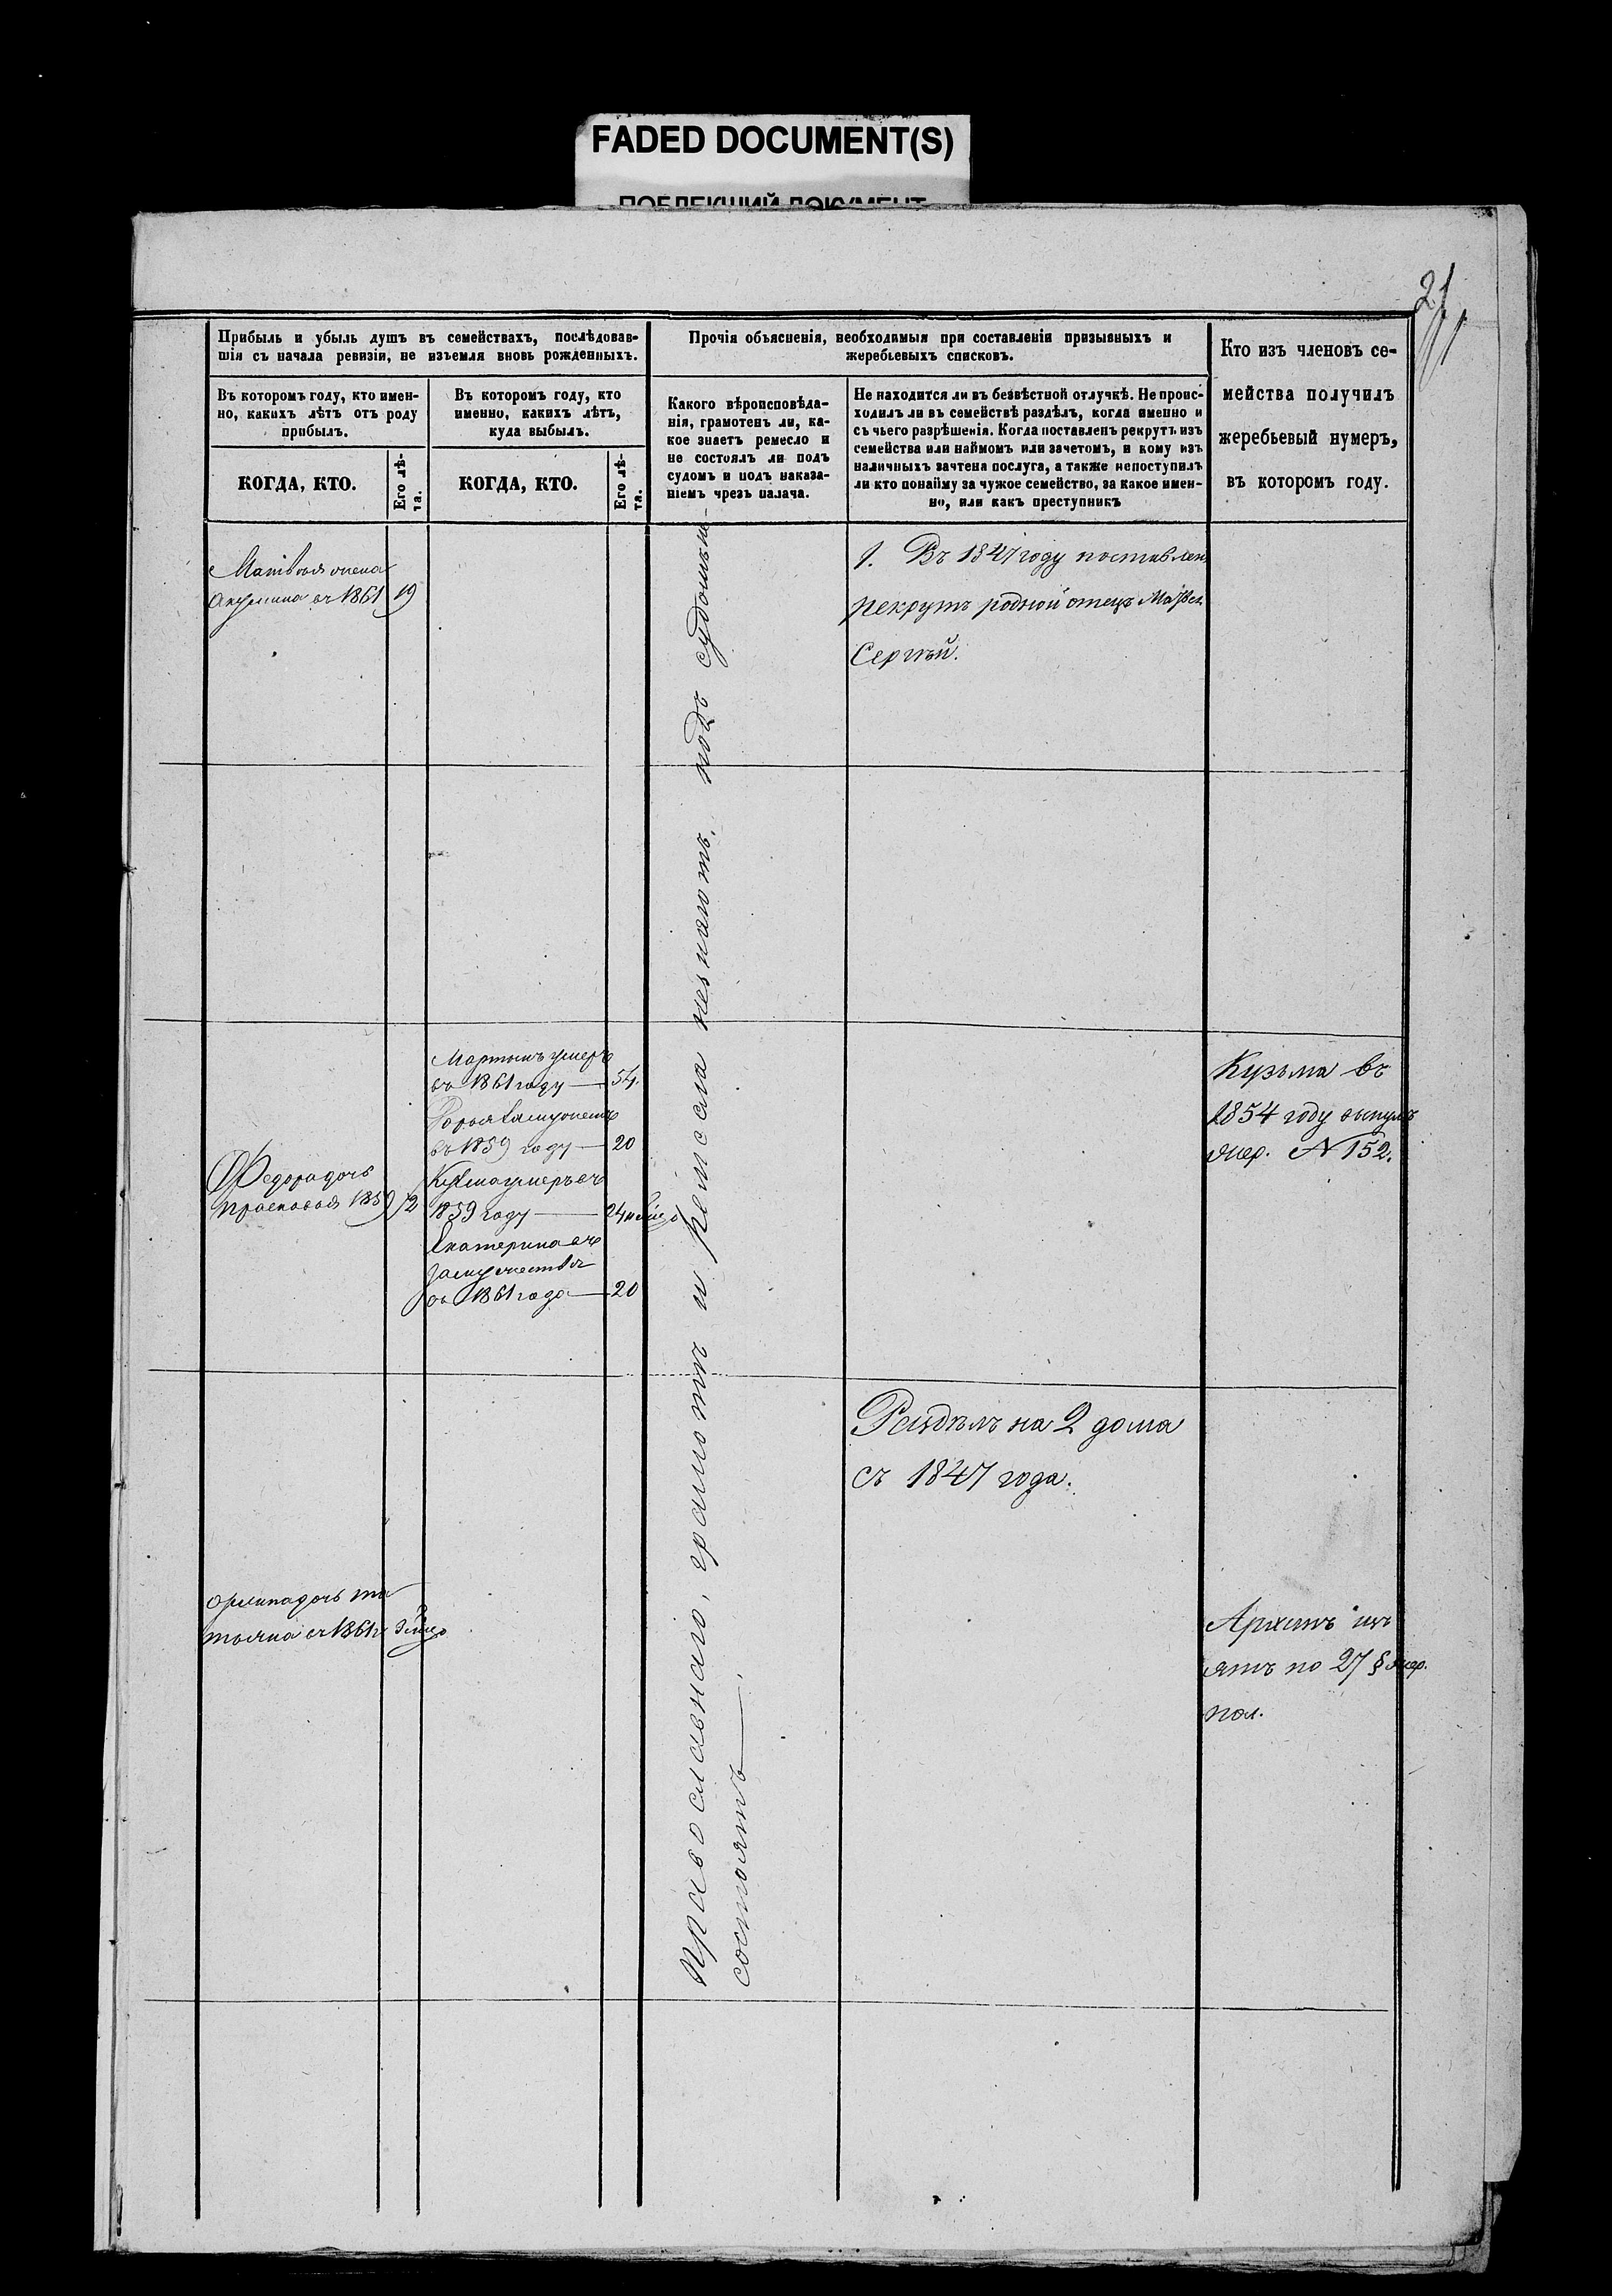 FADED DOCUMENT(S)
ПОБЛЕКШИЙ ДОКУМЕНТ
21
Прибыль и убыль душъ въ семействахъ, послѣдовав-
шія съ начала ревизіи, не изъемля вновь рожденныхъ.
Въ которомъ году, кто имен-
но, какихъ лѣтъ отъ роду
прибылъ.
КОГДА, КТО.
Его лѣ-
та.
Въ которомъ году, кто
именно, какихъ лѣтъ,
куда выбылъ.
КОГДА, КТО.
Его лѣ-
та.
Прочія объясненія, необходимыя при составленіи призывныхъ и
жеребьевыхъ списковъ.
Какого вѣроисповѣда-
нія, грамотенъ ли, ка-
кое знаетъ ремесло и
не состоялъ ли подъ
судомъ и подъ наказа-
ніемъ чрезъ палача.
Не находится ли въ безвѣстной отлучкѣ. Не проис-
ходилъ ли въ семействѣ раздѣлъ, когда именно и
съ чьего разрѣшенія. Когда поставленъ рекрутъ изъ
семейства или наймомъ или зачетомъ, и кому изъ
наличныхъ зачтена послуга, а также непоступилъ
ли кто понайму за чужое семейство, за какое имен-
но, или какъ преступникъ
Кто изъ членовъ се-
мейства получилъ
жеребьевый нумеръ,
въ которомъ году.
Матвѣя жена
Акулина въ 1861 19
1. Въ 1847 году поставлен
рекрутъ родной отецъ
Сергѣй.
Мартынъ умеръ
въ 1861 году — 54.
въ 1859 году — 20
Кузьма умеръ въ
1859 году — 24
Екатерина въ
замужествѣ
въ 1861 года — 20
Федора дочь
Прасковья 1859 /2
Кузьма въ
1854 году вынулъ
жер. N 152.
Раздѣлъ на 2 дома
съ 1847 года.
дочь Та
тьяна въ 1861г
Архипъ изъ
ятъ по 27 § жер.
пол.
Православнаго, грамотѣ и ремесла незнаютъ, подъ судомъ не
состоятъ —